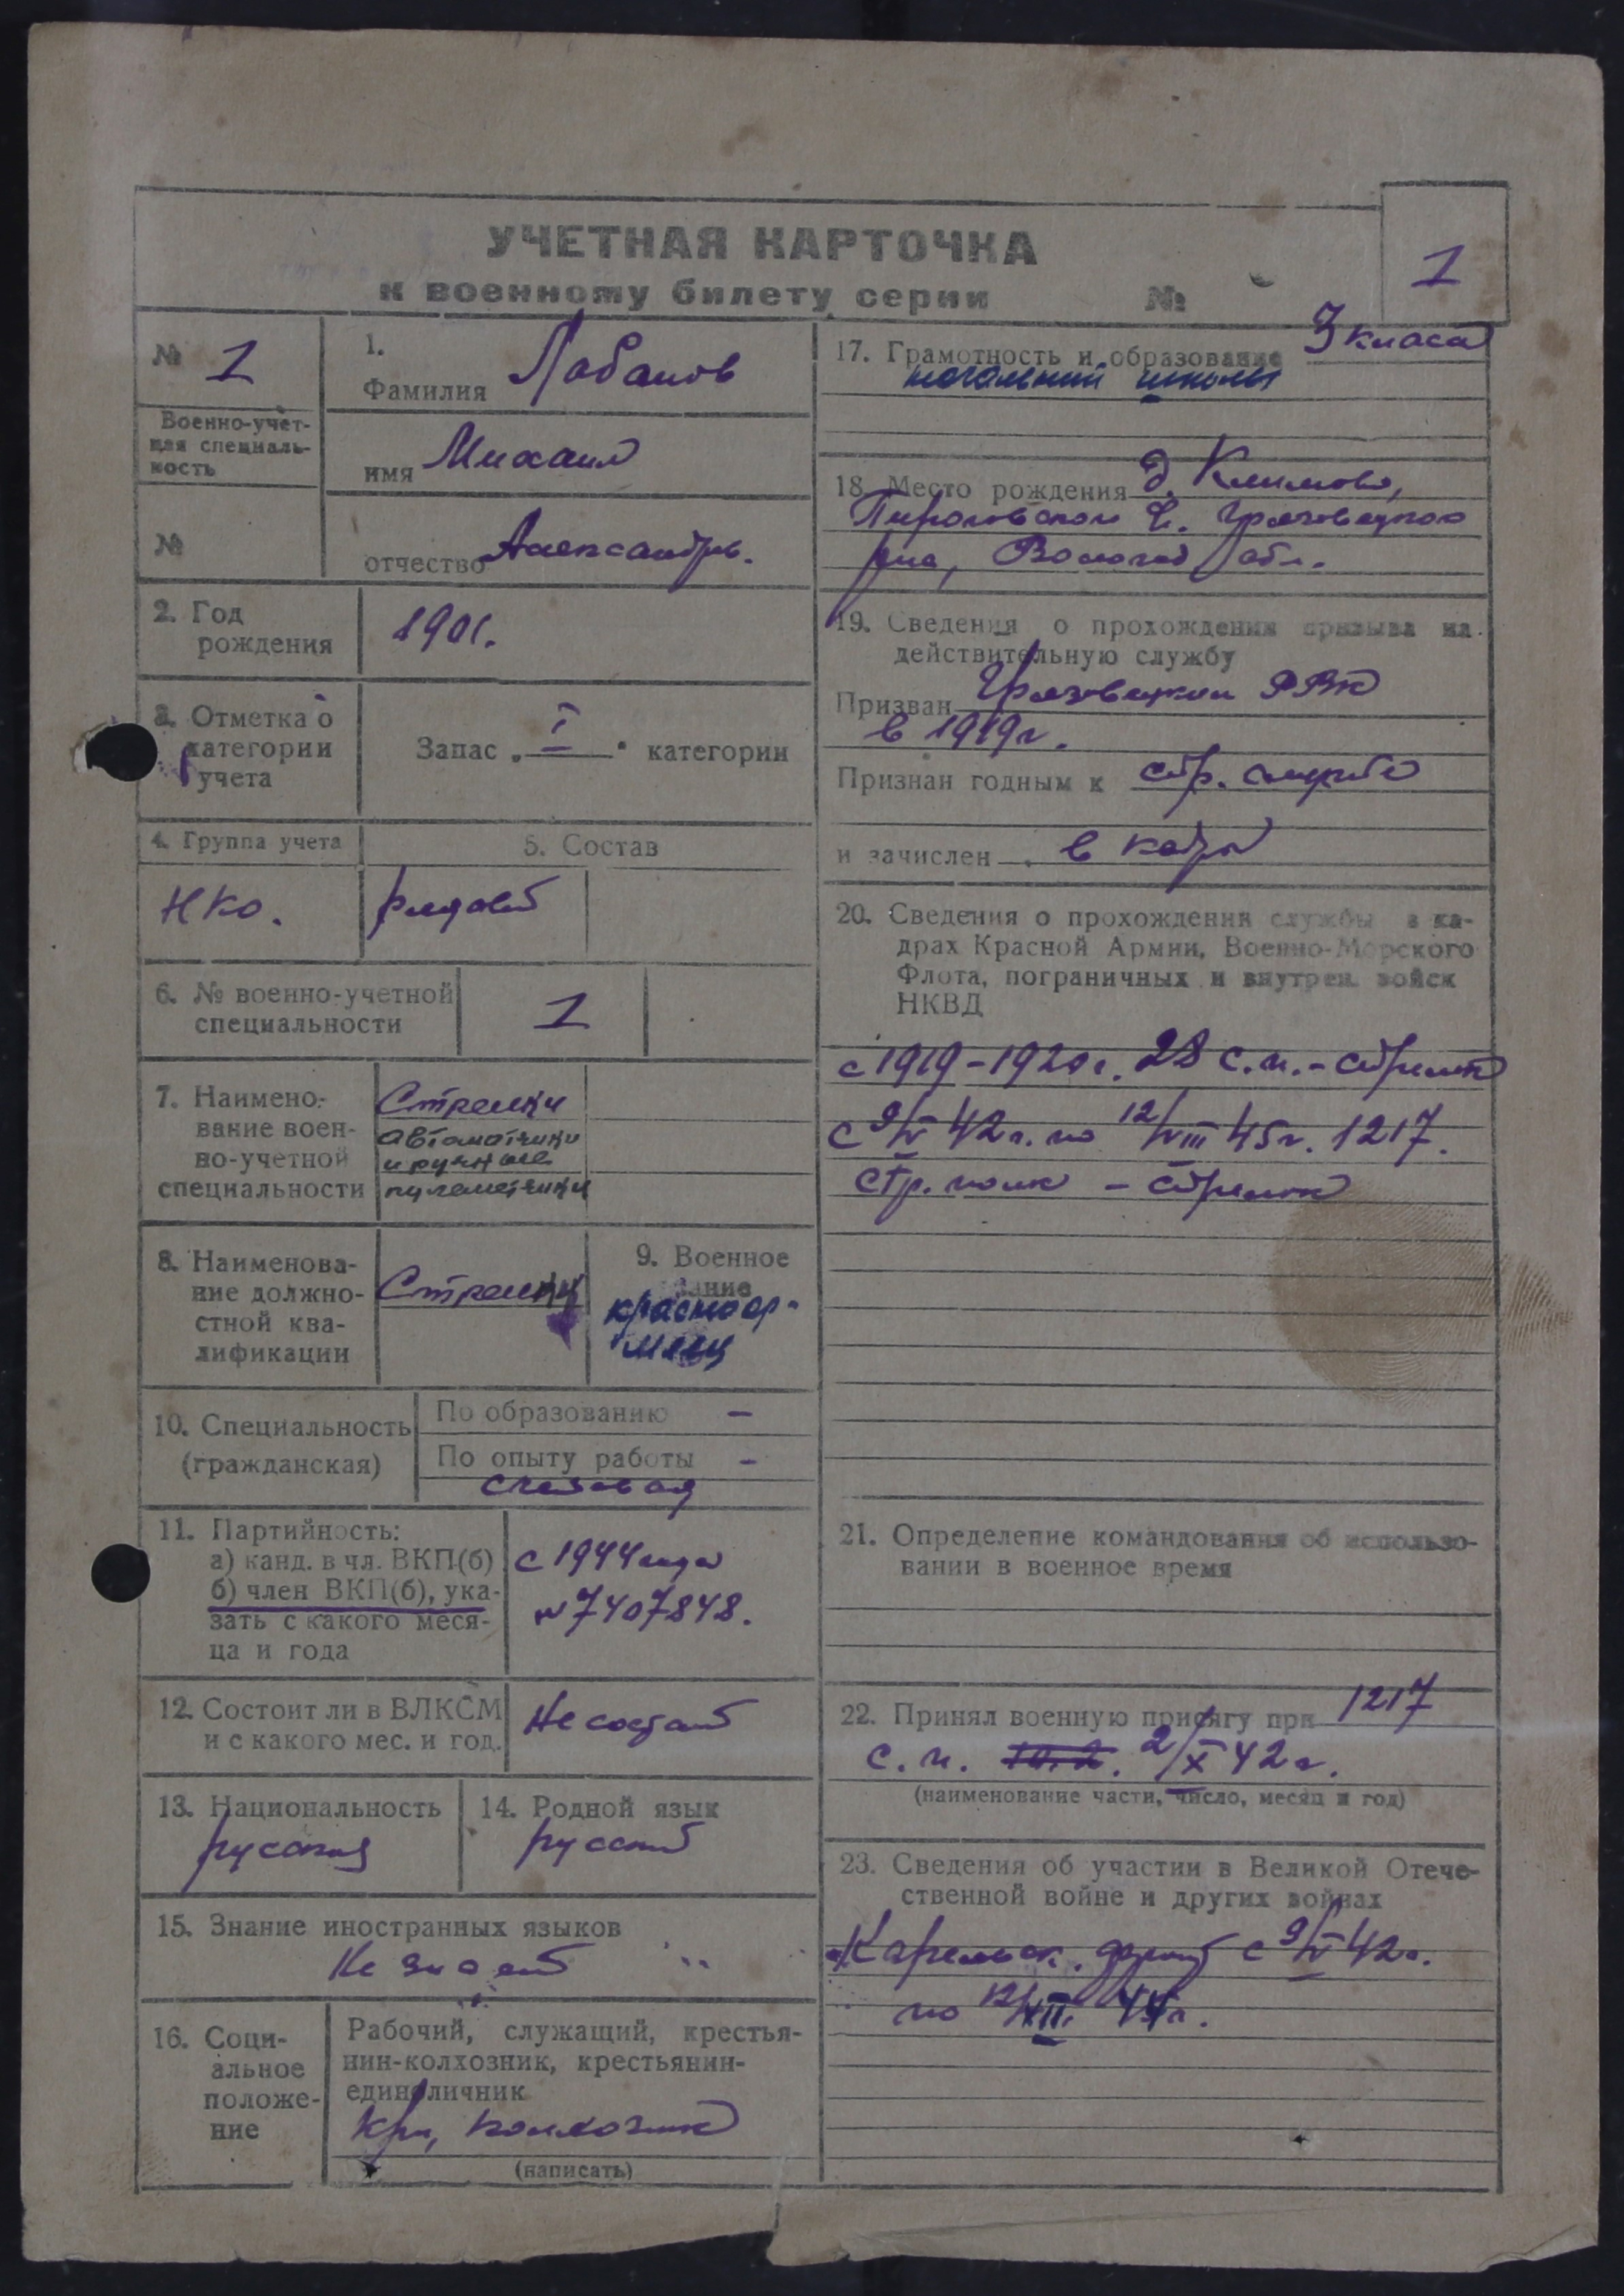 УЧЕТНАЯ КАРТОЧКА
к военному билету серии №
1
№ 1
Военно-учет-
ная специаль-
ность
№
1.
Фамилия Лобанов
имя Михаил
отчество Александров.
2. Год
рождения
1901.
3. Отметка о
категории
учета
Запас „I“ категории
4. Группа учета
НКО.
5. Состав
рядовой
6. № военно-учетной
специальности
1
7. Наимено-
вание воен-
но-учетной
специальности
Стрелки
автоматчики
и ручные
пулеметчики
8. Наименова-
ние должно-
стной ква-
лификации
Стрелки
9. Военное
звание
красноар-
меец
10. Специальность
(гражданская)
По образованию –
По опыту работы –
11. Партийность:
а) канд. в чл. ВКП(б)
б) член ВКП(б), ука-
зать с какого меся-
ца и года
с 1944 года
№ 7407848.
12. Состоит ли в ВЛКСМ
и с какого мес. и год.
Не состоит
13. Национальность
русский
14. Родной язык
русский
15. Знание иностранных языков
Не знает
16. Соци-
альное
положе-
ние
Рабочий, служащий, крестья-
нин-колхозник, крестьянин-
единоличник
Кр-н, колхозник
(написать)
17. Грамотность и образование 3 класа
начальной школы
18. Место рождения д. Климово,
Гряз­овецкого
р-на, Вологод обл.
19. Сведения о прохождении призыва на
действительную службу
Призван Грязовецким РВК
в 1919 г.
Признан годным к стр. службе
и зачислен в кадры
20. Сведения о прохождении службы в ка-
драх Красной Армии, Военно-Морского
Флота, пограничных и внутрен. войск
НКВД
с 1919-1920 г. 28 с.п. - стрелок
с 9/V 42 г. по 12/VIII 45 г. 1217.
стр. полк - стрелок
21. Определение командования об использо-
вании в военное время
22. Принял военную присягу при 1217
с.п. 2/X 42 г.
(наименование части, число, месяц и год)
23. Сведения об участии в Великой Отече-
ственной войне и других войнах
Карельск. фронт с 9/V 42 г.
по 12/XII 44 г.